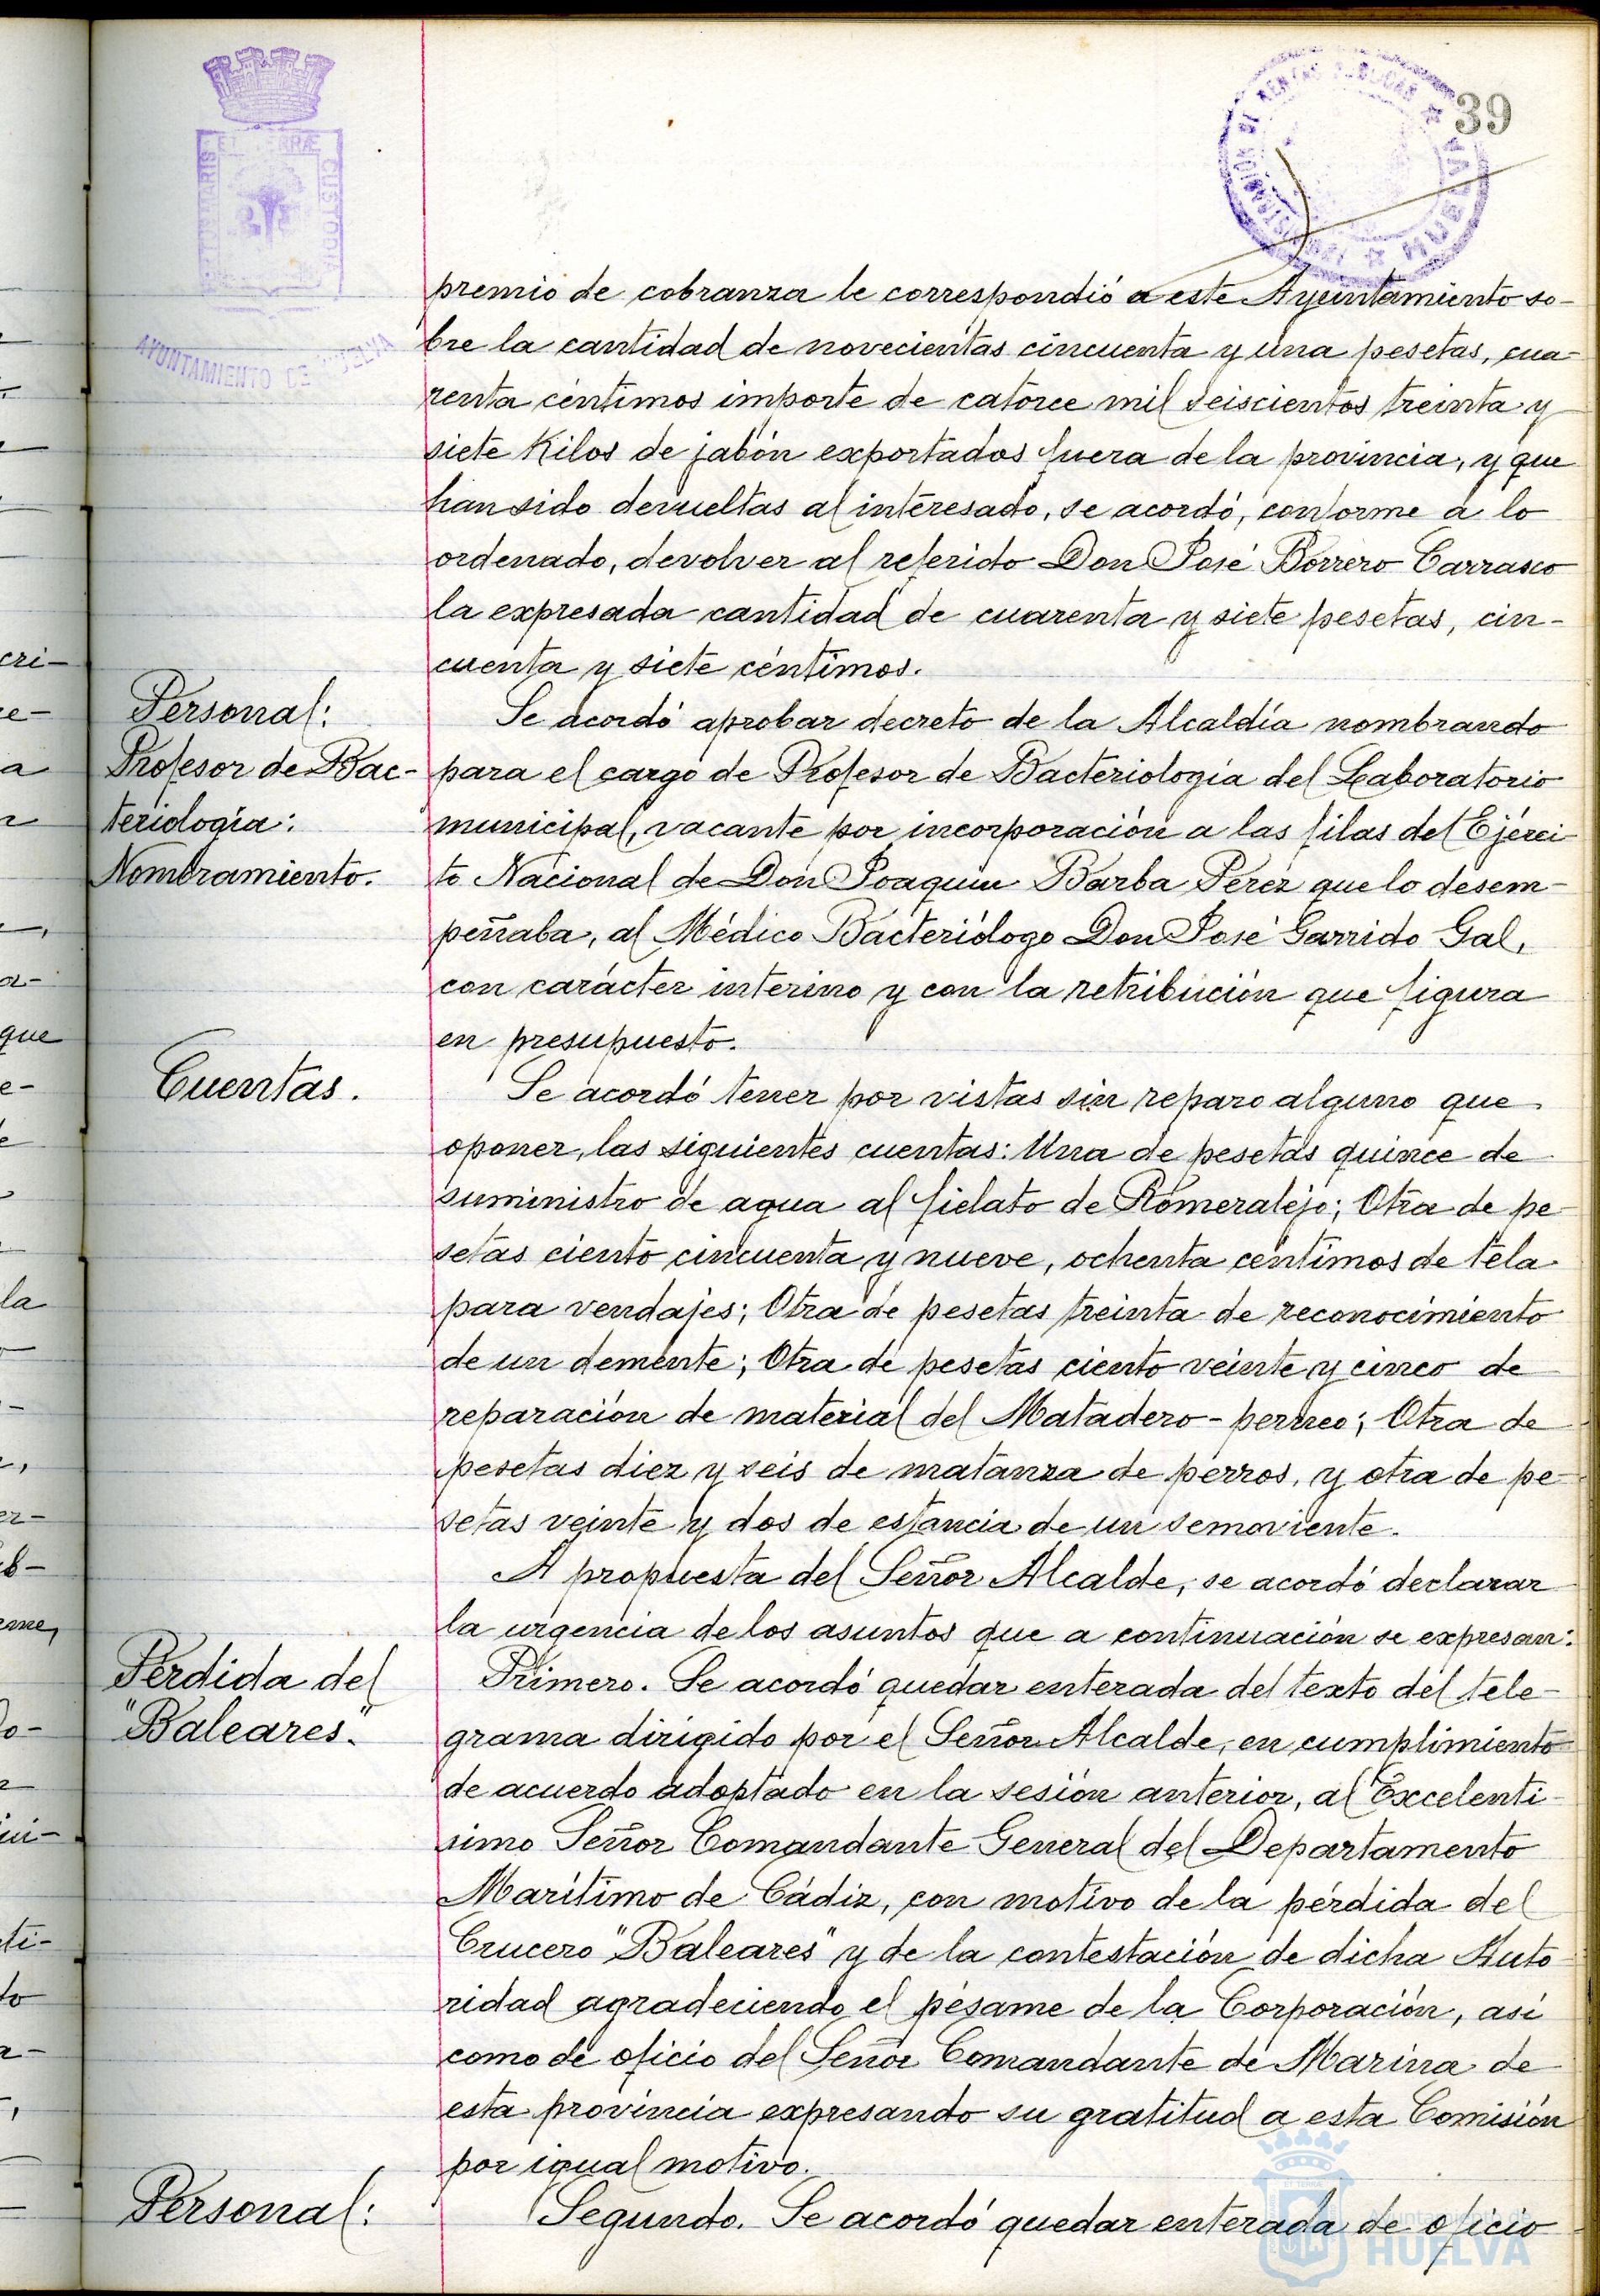 39
PORTUS MARIS ET TERRÆ CUSTODIA
AYUNTAMIENTO DE HUELVA
ADMINISTRACION DE RENTAS PUBLICAS HUELVA
premio de cobranza le correspondió a este Ayuntamiento so-
bre la cantidad de novecientas cincuenta y una pesetas, cua-
renta céntimos importe de catorce mil seiscientos treinta y
siete Kilos de jabón exportados fuera de la provincia, y que
han sido devueltas al interesado, se acordó, conforme a lo
ordenado, devolver al referido Don José Borrero Carrasco
la expresada cantidad de cuarenta y siete pesetas, cin-
cuenta y siete céntimos.
Personal:
Profesor de Bac-
teriología:
Nombramiento.
Se acordó aprobar decreto de la Alcaldía nombrando
para el cargo de Profesor de Bacteriología del Laboratorio
municipal, vacante por incorporación a las filas del Ejérci-
to Nacional de Don Joaquín Barba Pérez que lo desem-
peñaba, al Médico Bacteriólogo Don José Garrido Gal,
con carácter interino y con la retribución que figura
en presupuesto.
Cuentas.
Se acordó tener por vistas sin reparo alguno que
oponer, las siguientes cuentas: Una de pesetas quince de
suministro de agua al fielato de Romeralejo; Otra de pe-
setas ciento cincuenta y nueve, ochenta céntimos de tela
para vendajes; Otra de pesetas treinta de reconocimiento
de un demente; Otra de pesetas ciento veinte y cinco de
reparación de material del Matadero-perneo; Otra de
pesetas diez y seis de matanza de perros, y otra de pe-
setas veinte y dos de estancia de un semoviente.
A propuesta del Señor Alcalde, se acordó declarar
la urgencia de los asuntos que a continuación se expresan:
Pérdida del
"Baleares".
Primero. Se acordó quedar enterada del texto del tele-
grama dirigido por el Señor Alcalde, en cumplimiento
de acuerdo adoptado en la sesión anterior, al Excelentí-
simo Señor Comandante General del Departamento
Marítimo de Cádiz, con motivo de la pérdida del
Crucero "Baleares" y de la contestación de dicha Auto-
ridad agradeciendo el pésame de la Corporación, así
como de oficio del Señor Comandante de Marina de
esta provincia expresando su gratitud a esta Comisión
por igual motivo.
Personal:
Segundo. Se acordó quedar enterada de oficio
Ayuntamiento de
HUELVA